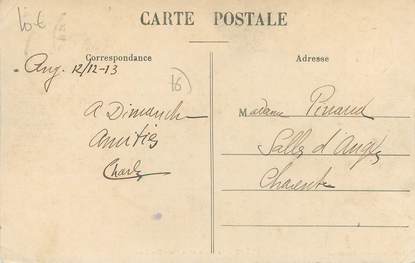 10 €
CARTE POSTALE
Correspondance
Adresse
Ang. 12/12-13
16
A Dimanche
Amitiés
Charles
Madame Pinaud
Salles d'Angles
Charente